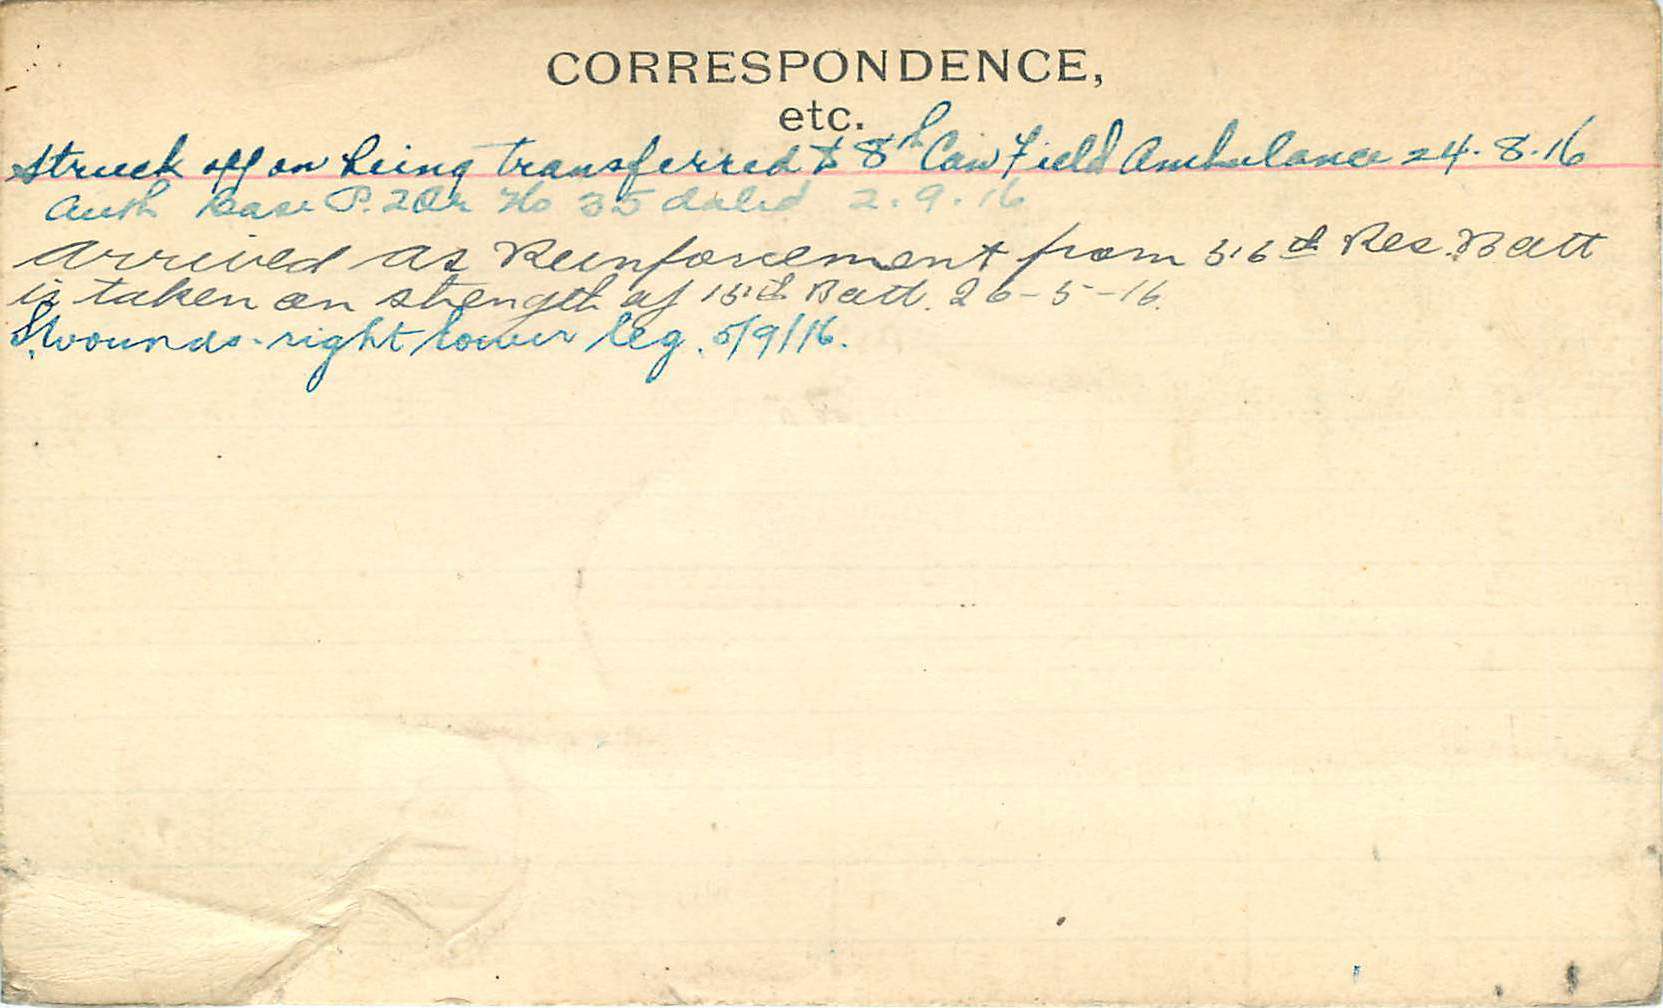 CORRESPONDENCE,
etc.
Struck off on being transferred to 8th Can Field Ambulance 24.8.16
Auth Base P. 2 Or No 35 dated 2.9.16
Arrived as Reinforcement from 36th Res. Batt
is taken on strength of 15th Batt. 26-5-16.
S. wounds. right lower leg. 5/9/16.